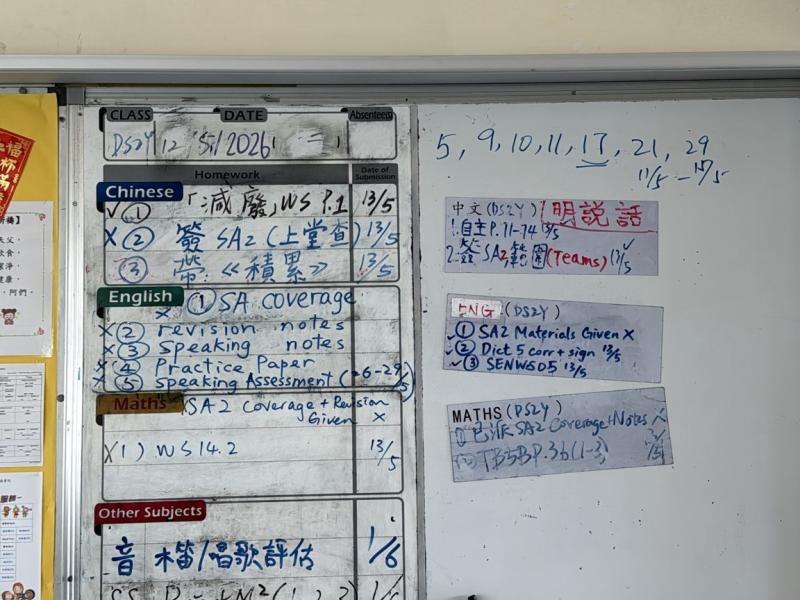 CLASS DATE Absentee(s)
DS2Y 12 / 5 / 2026
Homework Date of Submission
Chinese
① 「減廢」WS P.1 13/5
X ② 簽 SA2 (上堂查) 13/5
③ 帶《積累》 13/5
English
X ① SA coverage
X ② revision notes
X ③ speaking notes
X ④ Practice Paper
X ⑤ speaking Assessment (26-29/5)
Maths
SA2 coverage + Revision
Given X
1) WS 14.2 13/5
Other Subjects
音 木笛/唱歌評估 1/6
5, 9, 10, 11, 17, 21, 29
中文 (DS2Y) 明說話
1. 自主 P.71-74 13/5
2. 簽 SA2 範圍 (Teams) 13/5
ENG (DS2Y)
✓ ① SA2 Materials Given X
✓ ② Dict 5 corr + sign 13/5
✓ ③ SENWS05 13/5
MATHS (DS2Y)
已派 SA2 Coverage+Notes
TB5B P.36 (1-3)